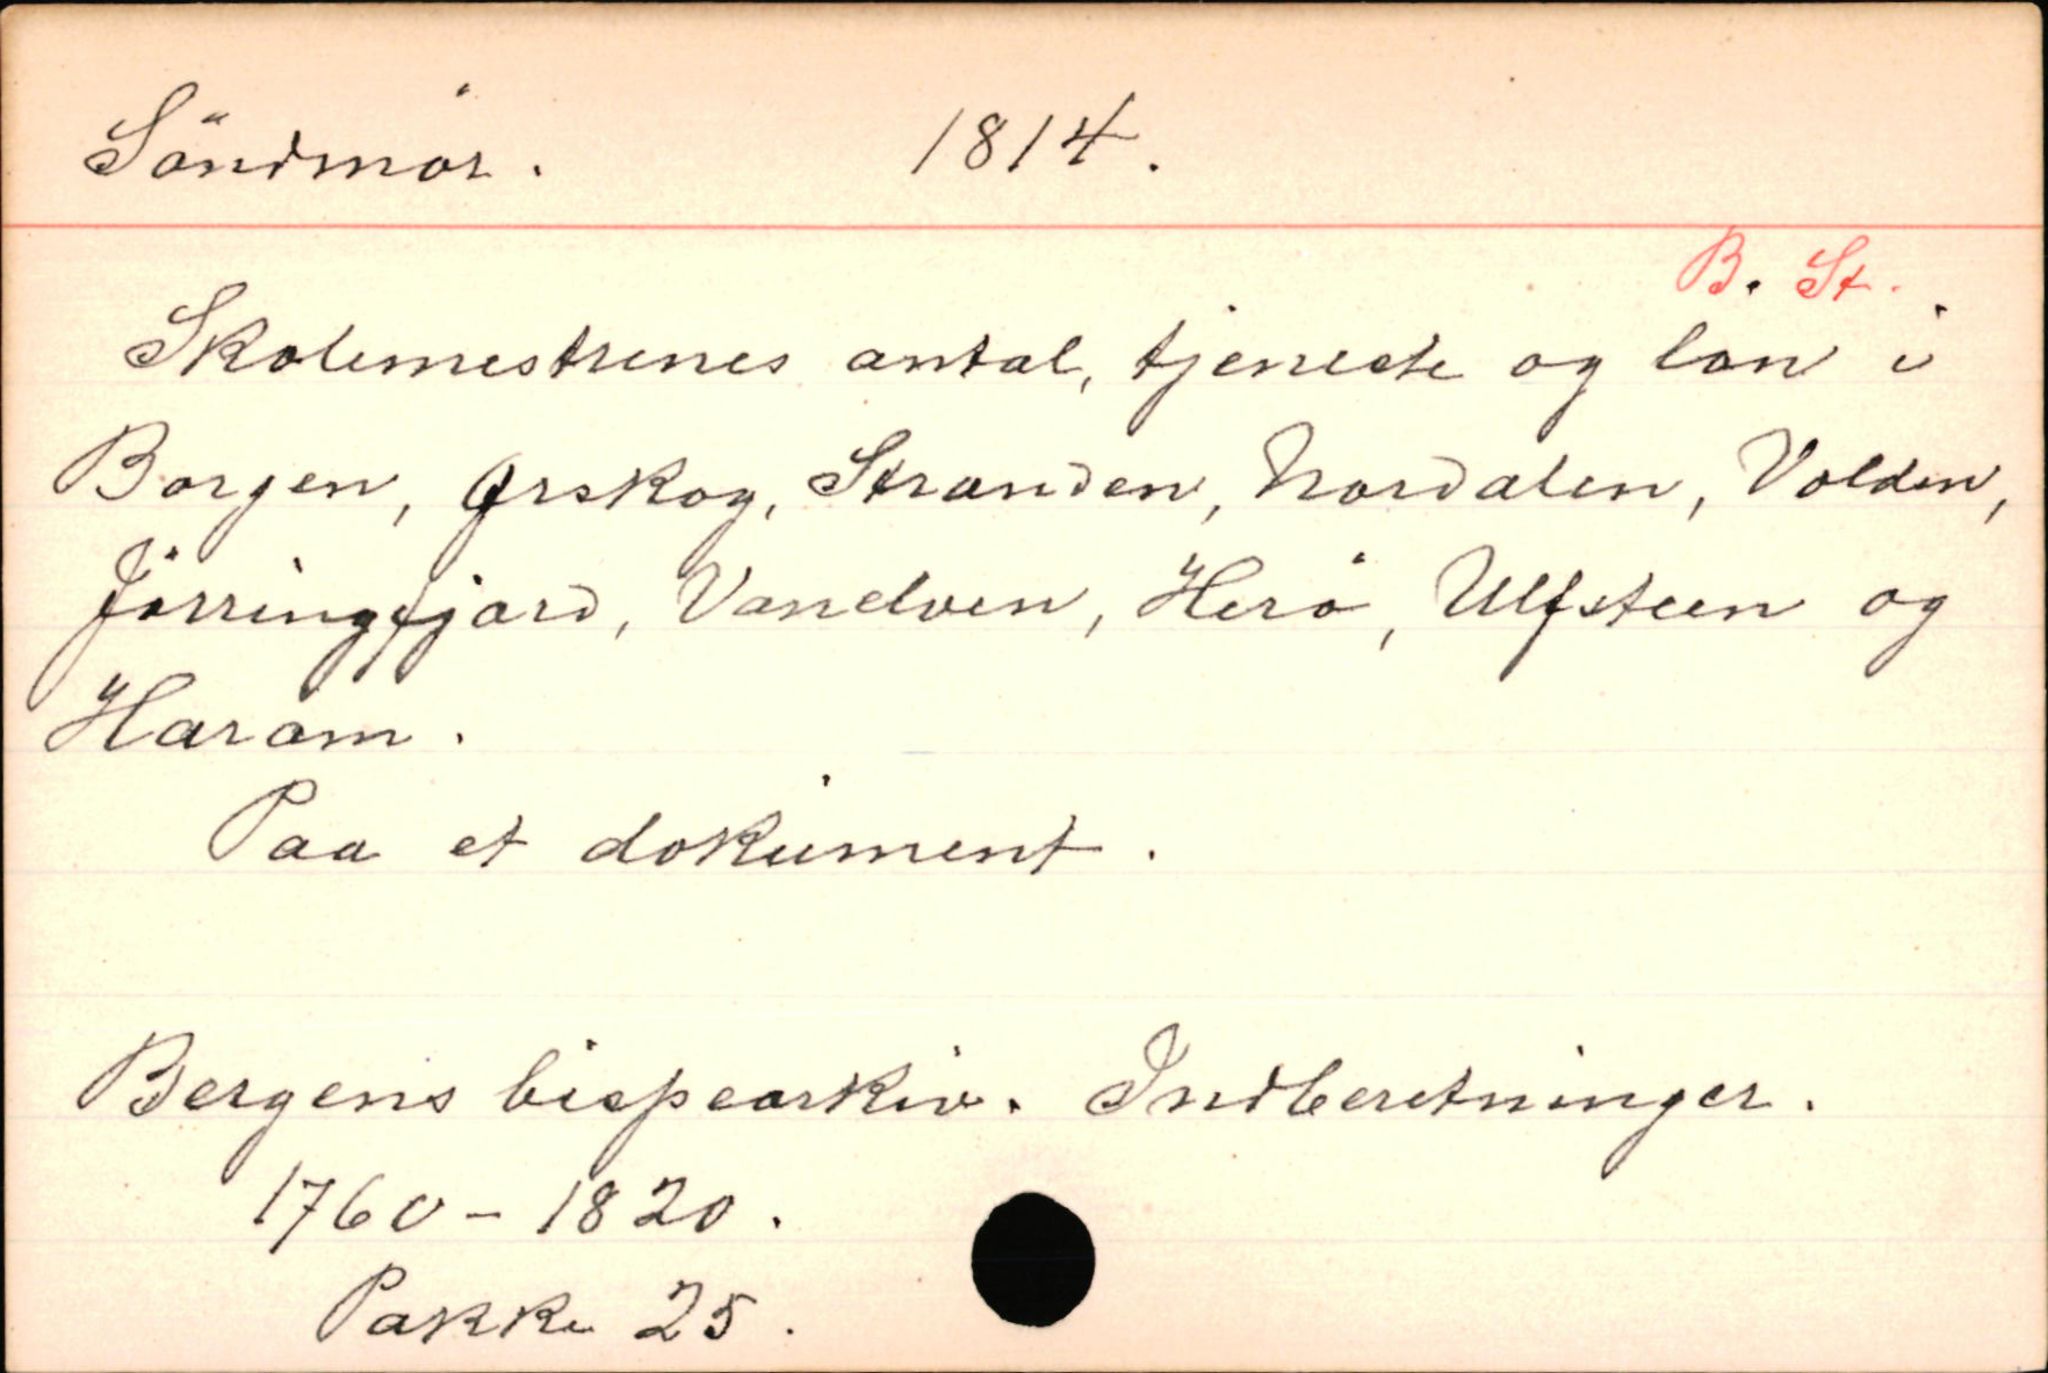 Söndmör. 1814.
B. St.
Skolemestrenes antal, tjeneste og lön i
Borgen, Ørskog, Stranden, Nordalen, Volden,
Jörringfjord, Vandelven, Herö, Ulfsteen og
Haram.
Paa et dokument.
Bergens bispearkiv. Indberetninger.
1760-1820.
Pakke 25.